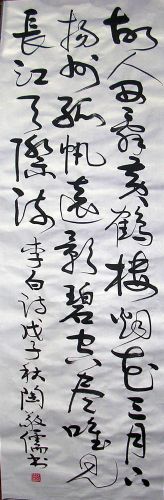 故人西辭黃鶴樓烟花三月下
揚州孤帆遠影碧空盡唯見
長江天際流 李白詩 戊子秋 陶儒書